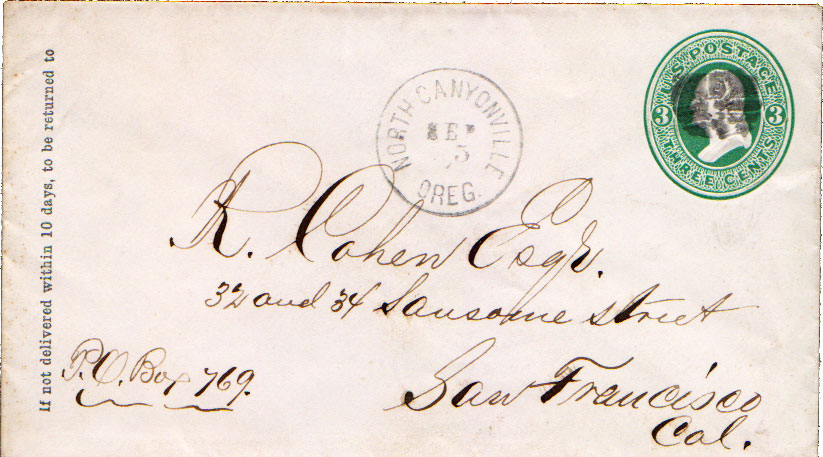 If not delivered within 10 days, to be returned to
NORTH CANYONVILLE
SEP
5
OREG.
U.S. POSTAGE
3 3
THREE CENTS
R. Cohen Esqr.
32 and 34 Sansome street
P.O. Box 769.
San Francisco
Cal.